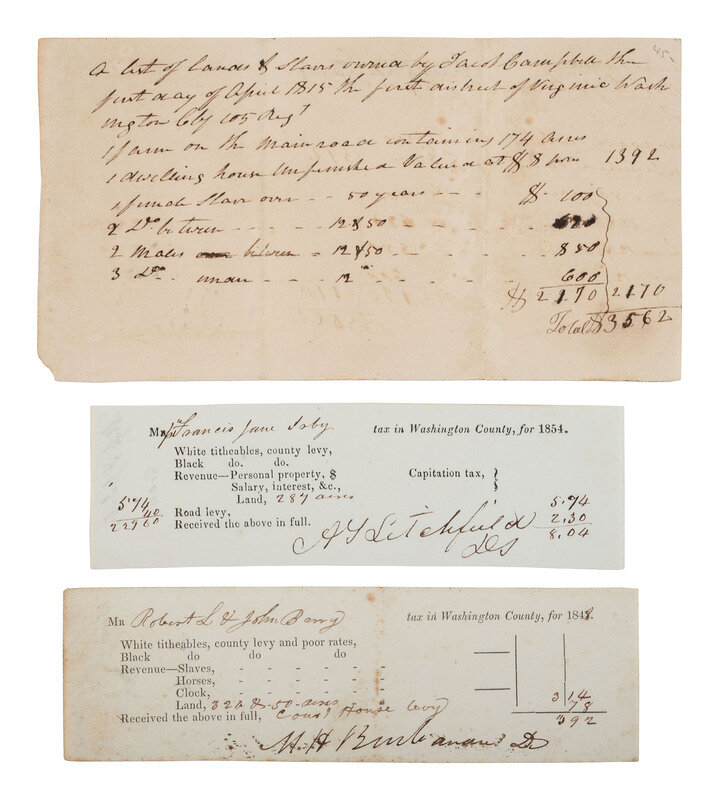 45-
a list of lands & Slaves owned by Jacob Campbell the
first day of April 1815 the first district of Virginia Wash
ington Cty 105 Regt
1 farm on the main road containing 174 acres
1 dwelling house unfinished Valued at $8 1392
1 female Slave over - - 50 years - - - $ 100
2 Do between - - - - 12 & 50 - - - - 620
2 males between - 12 & 50 - - - - - 850
3 Do - - under - - - 12 - - - - - - 600
$ 2170 2170
Total $ 3562
Mr Francis Jane Irby tax in Washington County, for 1854.
White titheables, county levy,
Black do. do.
Revenue—Personal property, $ Capitation tax, }
Salary, interest, &c.,
Land, 287 acres
5.74 Road levy, 5.74
40 2.30
22960 Received the above in full. 8.04
A S Litchfield
Ds
Mr Robert L & John Berry tax in Washington County, for 1848.
White titheables, county levy and poor rates,
Black do do do
Revenue—Slaves, - - - - -
Horses, - - - - -
Clock, - - - - -
Land, 320 & 50 acres - 3 14
Received the above in full, House levy 78
3 92
M. H Buchanan Ds